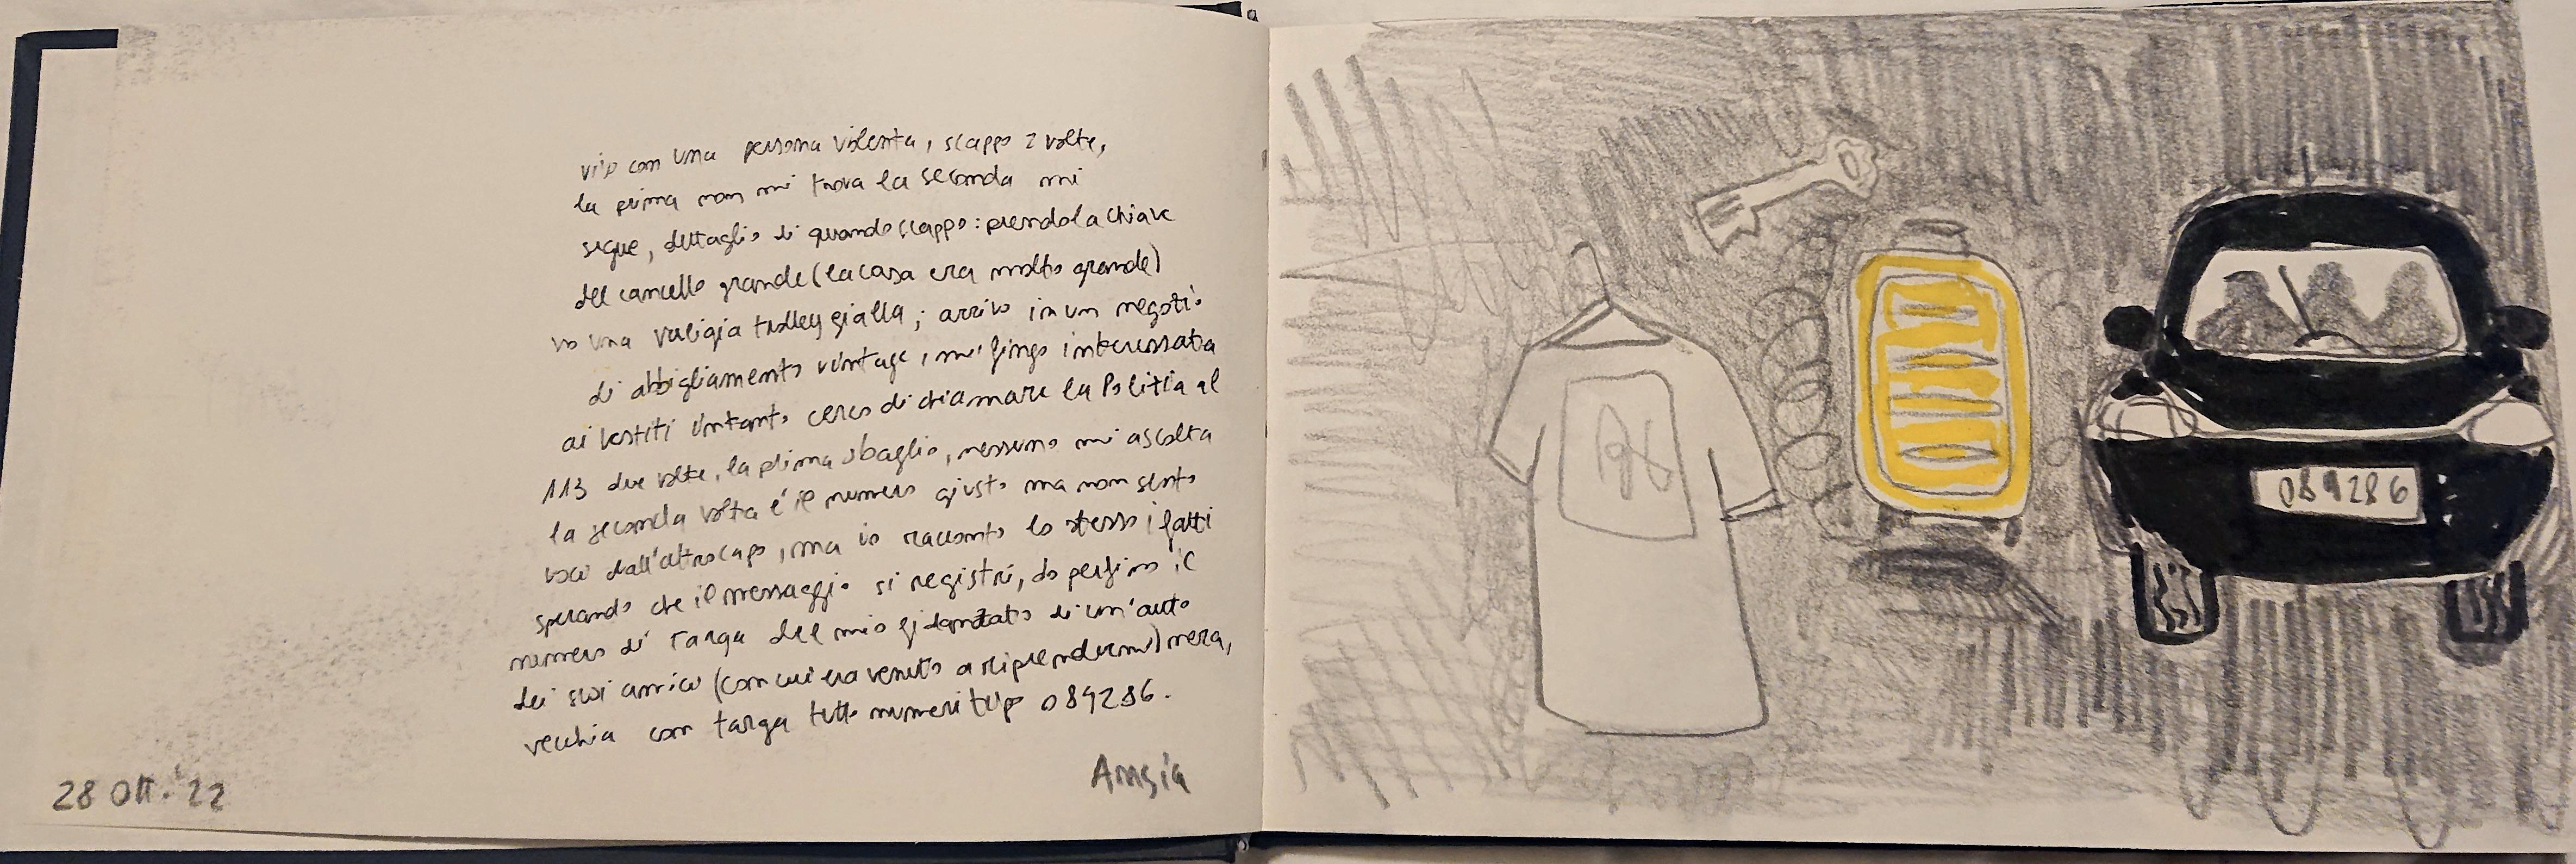 vivo con una persona violenta, scappo 2 volte,
la prima non mi trova la seconda mi
segue, dettaglio di quando scappo: prendo la chiave
del cancello grande (la casa era molto grande)
ho una valigia trolley gialla, arrivo in un negozio
di abbigliamento vintage, mi fingo interessata
ai vestiti intanto cerco di chiamare la Polizia al
113 due volte, la prima sbaglio, nessuno mi ascolta
la seconda volta è il numero giusto ma non sento
voci dall'altro capo, ma io racconto lo stesso i fatti
sperando che il messaggio si registri, do perfino il
numero di targa del mio fidanzato di un'auto
dei suoi amici (con cui era venuto a riprendermi) nera,
vecchia con targa tutto numeri tipo 089286.
Ansia
28 Ott. '22
089286